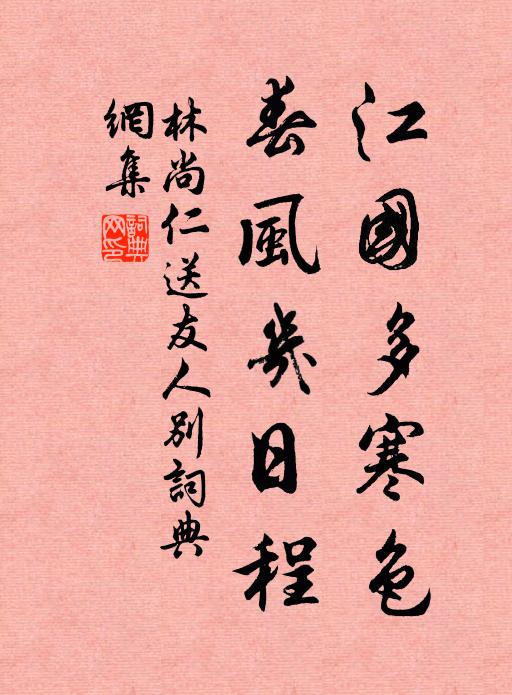 江國多寒色
春風幾日程
林尚仁送友人別詞典
網集
詞典
网印